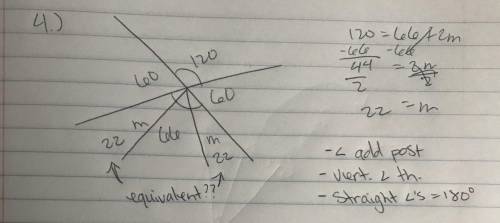 4.)
120
60
60
22
m
66
m
22
equivalent??
120 = 66 + 2m
-66 -66
44 = 2m
2 2
22 = m
- ∠ add post
- Vert. ∠ th.
- Straight ∠'s = 180°